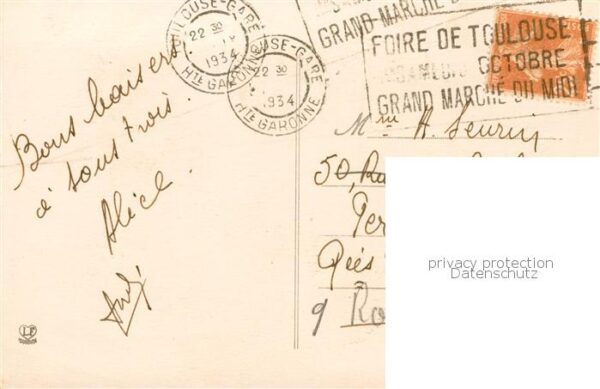 TOULOUSE-GARE
22 30
1934
HTE GARONNE
TOULOUSE-GARE
22 30
1934
HTE GARONNE
GRAND MARCHE DU
FOIRE DE TOULOUSE
OCTOBRE
GRAND MARCHE DU MIDI
Bons baisers
à tous trois.
Alice
Mme A. Seurin
50, Ru
Per
Près
9 Ro
privacy protection
Datenschutz